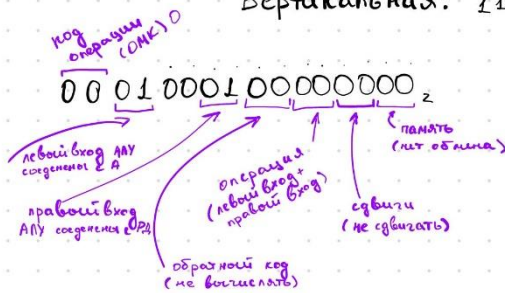 Вертикальная: 11
код
операции
(ОМК) 0
00 01 0001 00 00 00 00 2
левый вход АЛУ
соеденены с А
правой вход
АЛУ соеденены с РД
обратной код
(не вычислять)
операция
(левый вход +
правой вход)
сдвиги
(не сдвигать)
память
(нит обмина)